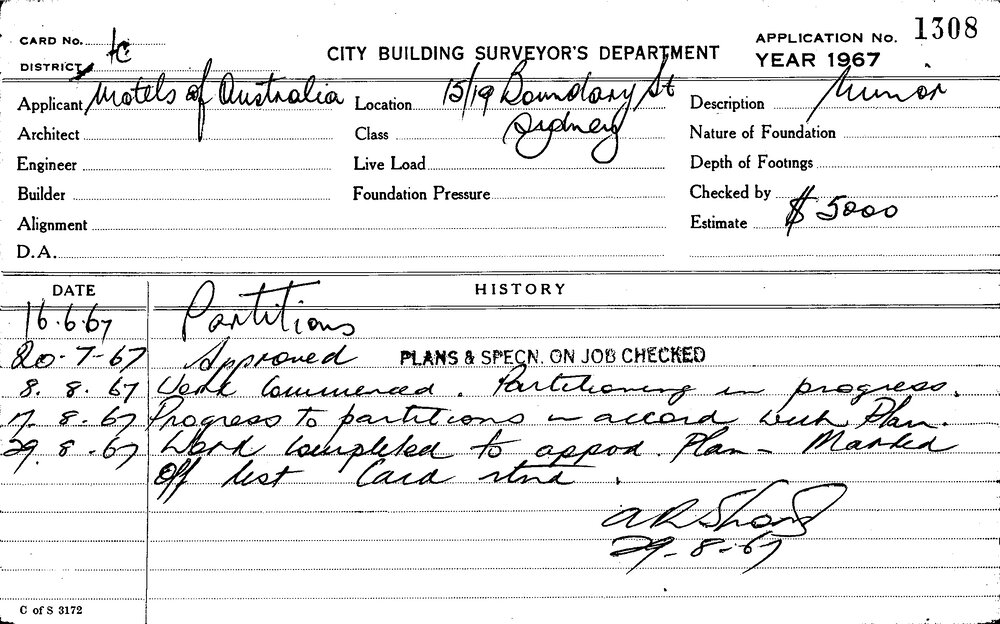 CARD No.
CITY BUILDING SURVEYOR'S DEPARTMENT
APPLICATION No. 1308
DISTRICT
YEAR 1967
Applicant Motels of Australia
Location 15/19 Boundary St
Sydney
Description Minor
Architect
Class
Nature of Foundation
Engineer
Live Load
Depth of Footings
Builder
Foundation Pressure
Checked by
Alignment
Estimate $ 5000
D.A.
DATE HISTORY
16.6.67 Partitions
20-7-67 Approved PLANS & SPECN. ON JOB CHECKED
8. 8. 67 Work Commenced. Partitioning in progress.
17-8-67 Progress to partitions in accord with Plan.
29.8-67 Work completed to appvd. Plan - Marked
Off list Card
29-8-67
C of S 3172